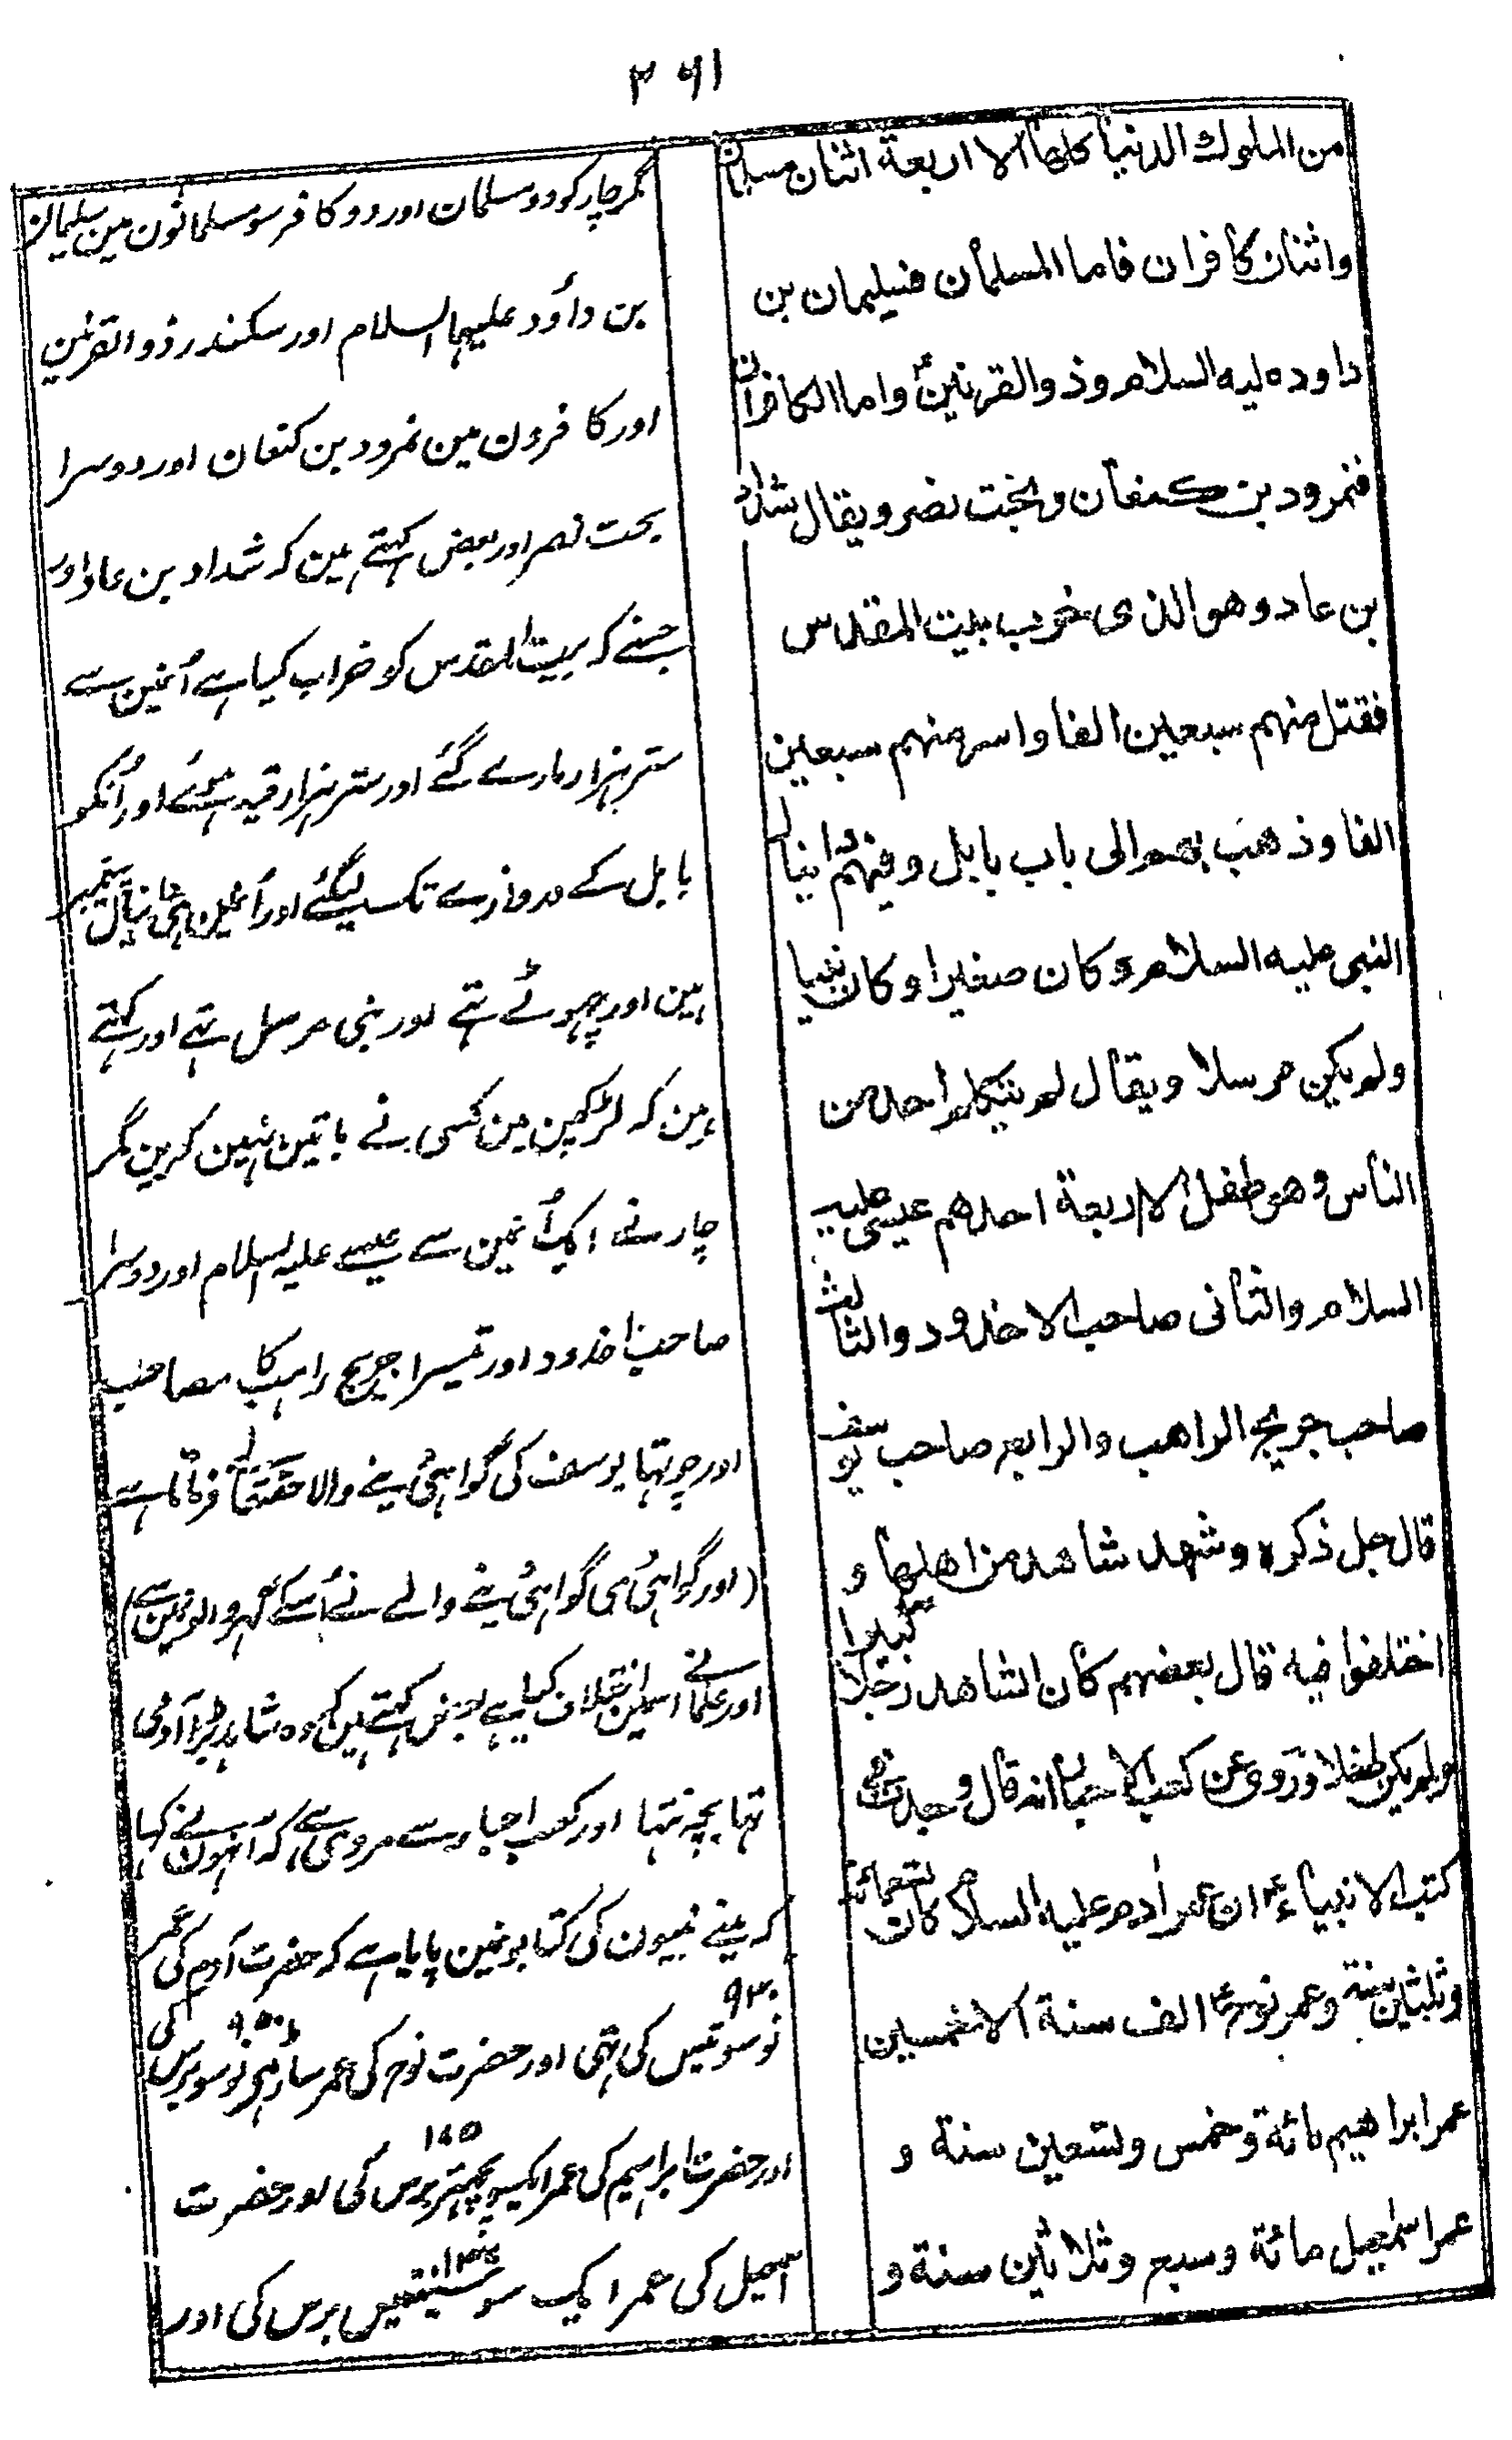 ۲۶۱
من الملوك الدنيا كلها الا اربعة اثنان مسلمان
واثنان كافران فاما المسلمان فسليمان بن
داود عليه السلام وذوالقرنينؑ واما الكافران
فنمرود بن كنعان وبخت نصر ويقال شداد
بن عاد وهوالذى خرب بيت المقدس
فقتل منهم سبعين الفا واسر منهم سبعين
الفا وذهب بهم الى باب بابل وفيهم دانيال
النبى عليه السلام وكان صغيرا وكان نبيا
ولم يكن مرسلا ويقال لم يتكلم احد من
الناس وهو طفل الا اربعة احدهم عيسى عليه
السلام والثانى صاحب الاخدود والثالث
صاحب جريج الراهب والرابع صاحب يوسف
قال جل ذكره وشهد شاهد من اهلها و
اختلفوا فيه قال بعضهم كان الشاهد رجلا كبيرا
ولم يكن طفلا وروى عن كعب الاحبار انه قال وجدت فى
كتب الانبياءؑ ان عمر ادم عليه السلام كان تسعمائة
وثلثين سنة وعمر نوحؑ الف سنة الا خمسين
عمر ابراهيم مائة وخمس وتسعين سنة و
عمر اسمٰعيل مائة وسبع وثلاثين سنة و
مگر چار کو دو مسلمان اور دو کافر سو مسلمانون مین سلیمان
بن داؤد علیہما السلام اور سکندر ذو القرنین
اور کافرون مین نمرود بن کنعان اور دوسرا
بخت نصر اور بعض کہتے ہین کہ شداد بن عاد اور
جسنے کہ بیت المقدس کو خراب کیا ہے اُنمین سے
ستر ہزار مارے گئے اور ستر ہزار قید ہوئے اور اُنکو
بابل کے دروازے تک لیگئے اور اُنمین ہی دانیال پیغمبر
ہین اور چھوٹے تھے اور نبی مرسل تھے اور کہتے
ہین کہ لڑکپن مین کسی نے باتین نہین کرین مگر
چار نے ایک اُنمین سے عیسے علیہ السلام اور دوسرا
صاحب اخدود اور تیسرا جریج راہب کا مصاحب
اور چوتھا یوسف کی گواہی دینے والا حقتعالےٰ فرماتا ہے
(اور گواہی دی گواہی دینے والے نے اُسکے گھر والونمین سے)
اور علما نے اسمین اختلاف کیا ہے بعض کہتے ہین کہ وہ شاہد بڑا آدمی
تھا بچہ نتھا اور کعب احبار سے مروی ہے کہ اُنہون نے کہا
کہ مینے نبیون کی کتابونمین پایا ہے کہ حضرت آدم کی عمر
۹۳۰ ۹۵۰
نو سو تیس کی تھی اور حضرت نوح کی عمر ساڑھے نو سو برس کی
۱۷۵
اور حضرت ابراہیم کی عمر ایکسو پچہتر برس کی اور حضرت
اسمٰعیل کی عمر ایک سو سینتیس برس کی اور